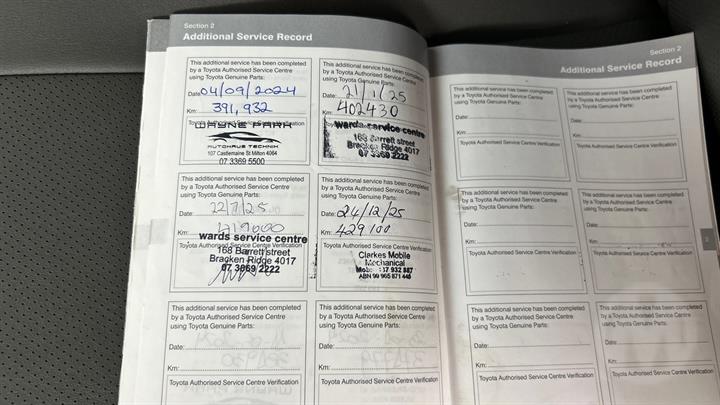 Section 2
Additional Service Record
This additional service has been completed
by a Toyota Authorised Service Centre
using Toyota Genuine Parts:
Date: 04/09/2024
Km: 391,932
Toyota Authorised Service Centre Verification
WAYNE PARK
AUTOHAUS TECHNIK
107 Castlemaine St Milton 4064
07 3369 5500
This additional service has been completed
by a Toyota Authorised Service Centre
using Toyota Genuine Parts:
Date: 21/1/25
Km: 402430
wards service centre
168 Barrett street
Bracken Ridge 4017
07 3369 2222
This additional service has been completed
by a Toyota Authorised Service Centre
using Toyota Genuine Parts:
Date: 22/7/25
Km:
wards service centre
Toyota Authorised Service Centre Verification
168 Barrett street
Bracken Ridge 4017
07 3869 2222
This additional service has been completed
by a Toyota Authorised Service Centre
using Toyota Genuine Parts:
Date: 24/12/25
Km: 429100
Toyota Authorised Service Centre Verification
Clarkes Mobile
Mechanical
ABN 99 965 871 448
This additional service has been completed
by a Toyota Authorised Service Centre
using Toyota Genuine Parts:
Date:
Km:
Toyota Authorised Service Centre Verification
This additional service has been completed
by a Toyota Authorised Service Centre
using Toyota Genuine Parts:
Date:
Km:
Toyota Authorised Service Centre Verification
Section 2
Additional Service Record
This additional service has been completed
by a Toyota Authorised Service Centre
using Toyota Genuine Parts:
Date:
Km:
Toyota Authorised Service Centre Verification
This additional service has been completed
by a Toyota Authorised Service Centre
using Toyota Genuine Parts:
Date:
Km:
Toyota Authorised Service Centre Verification
This additional service has been completed
by a Toyota Authorised Service Centre
using Toyota Genuine Parts:
Date:
Km:
Toyota Authorised Service Centre Verification
This additional service has been completed
by a Toyota Authorised Service Centre
using Toyota Genuine Parts:
Date:
Km:
Toyota Authorised Service Centre Verification
This additional service has been completed
by a Toyota Authorised Service Centre
using Toyota Genuine Parts:
Date:
Km:
Toyota Authorised Service Centre Verification
This additional service has been completed
by a Toyota Authorised Service Centre
using Toyota Genuine Parts:
Date:
Km:
Toyota Authorised Service Centre Verification
2